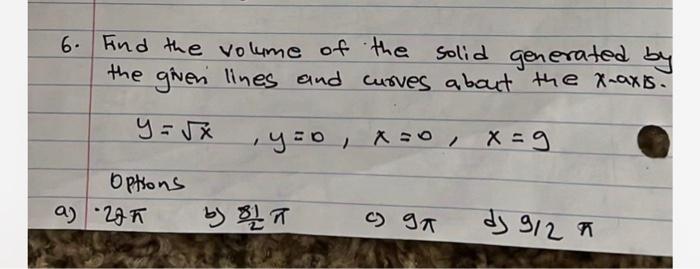 6. Find the volume of the solid generated by
the given lines and curves about the x-axis.
y = √x , y = 0 , x = 0 , x = 9
Options
a) 27 π b) 81/2 π c) 9π d) 9/2 π